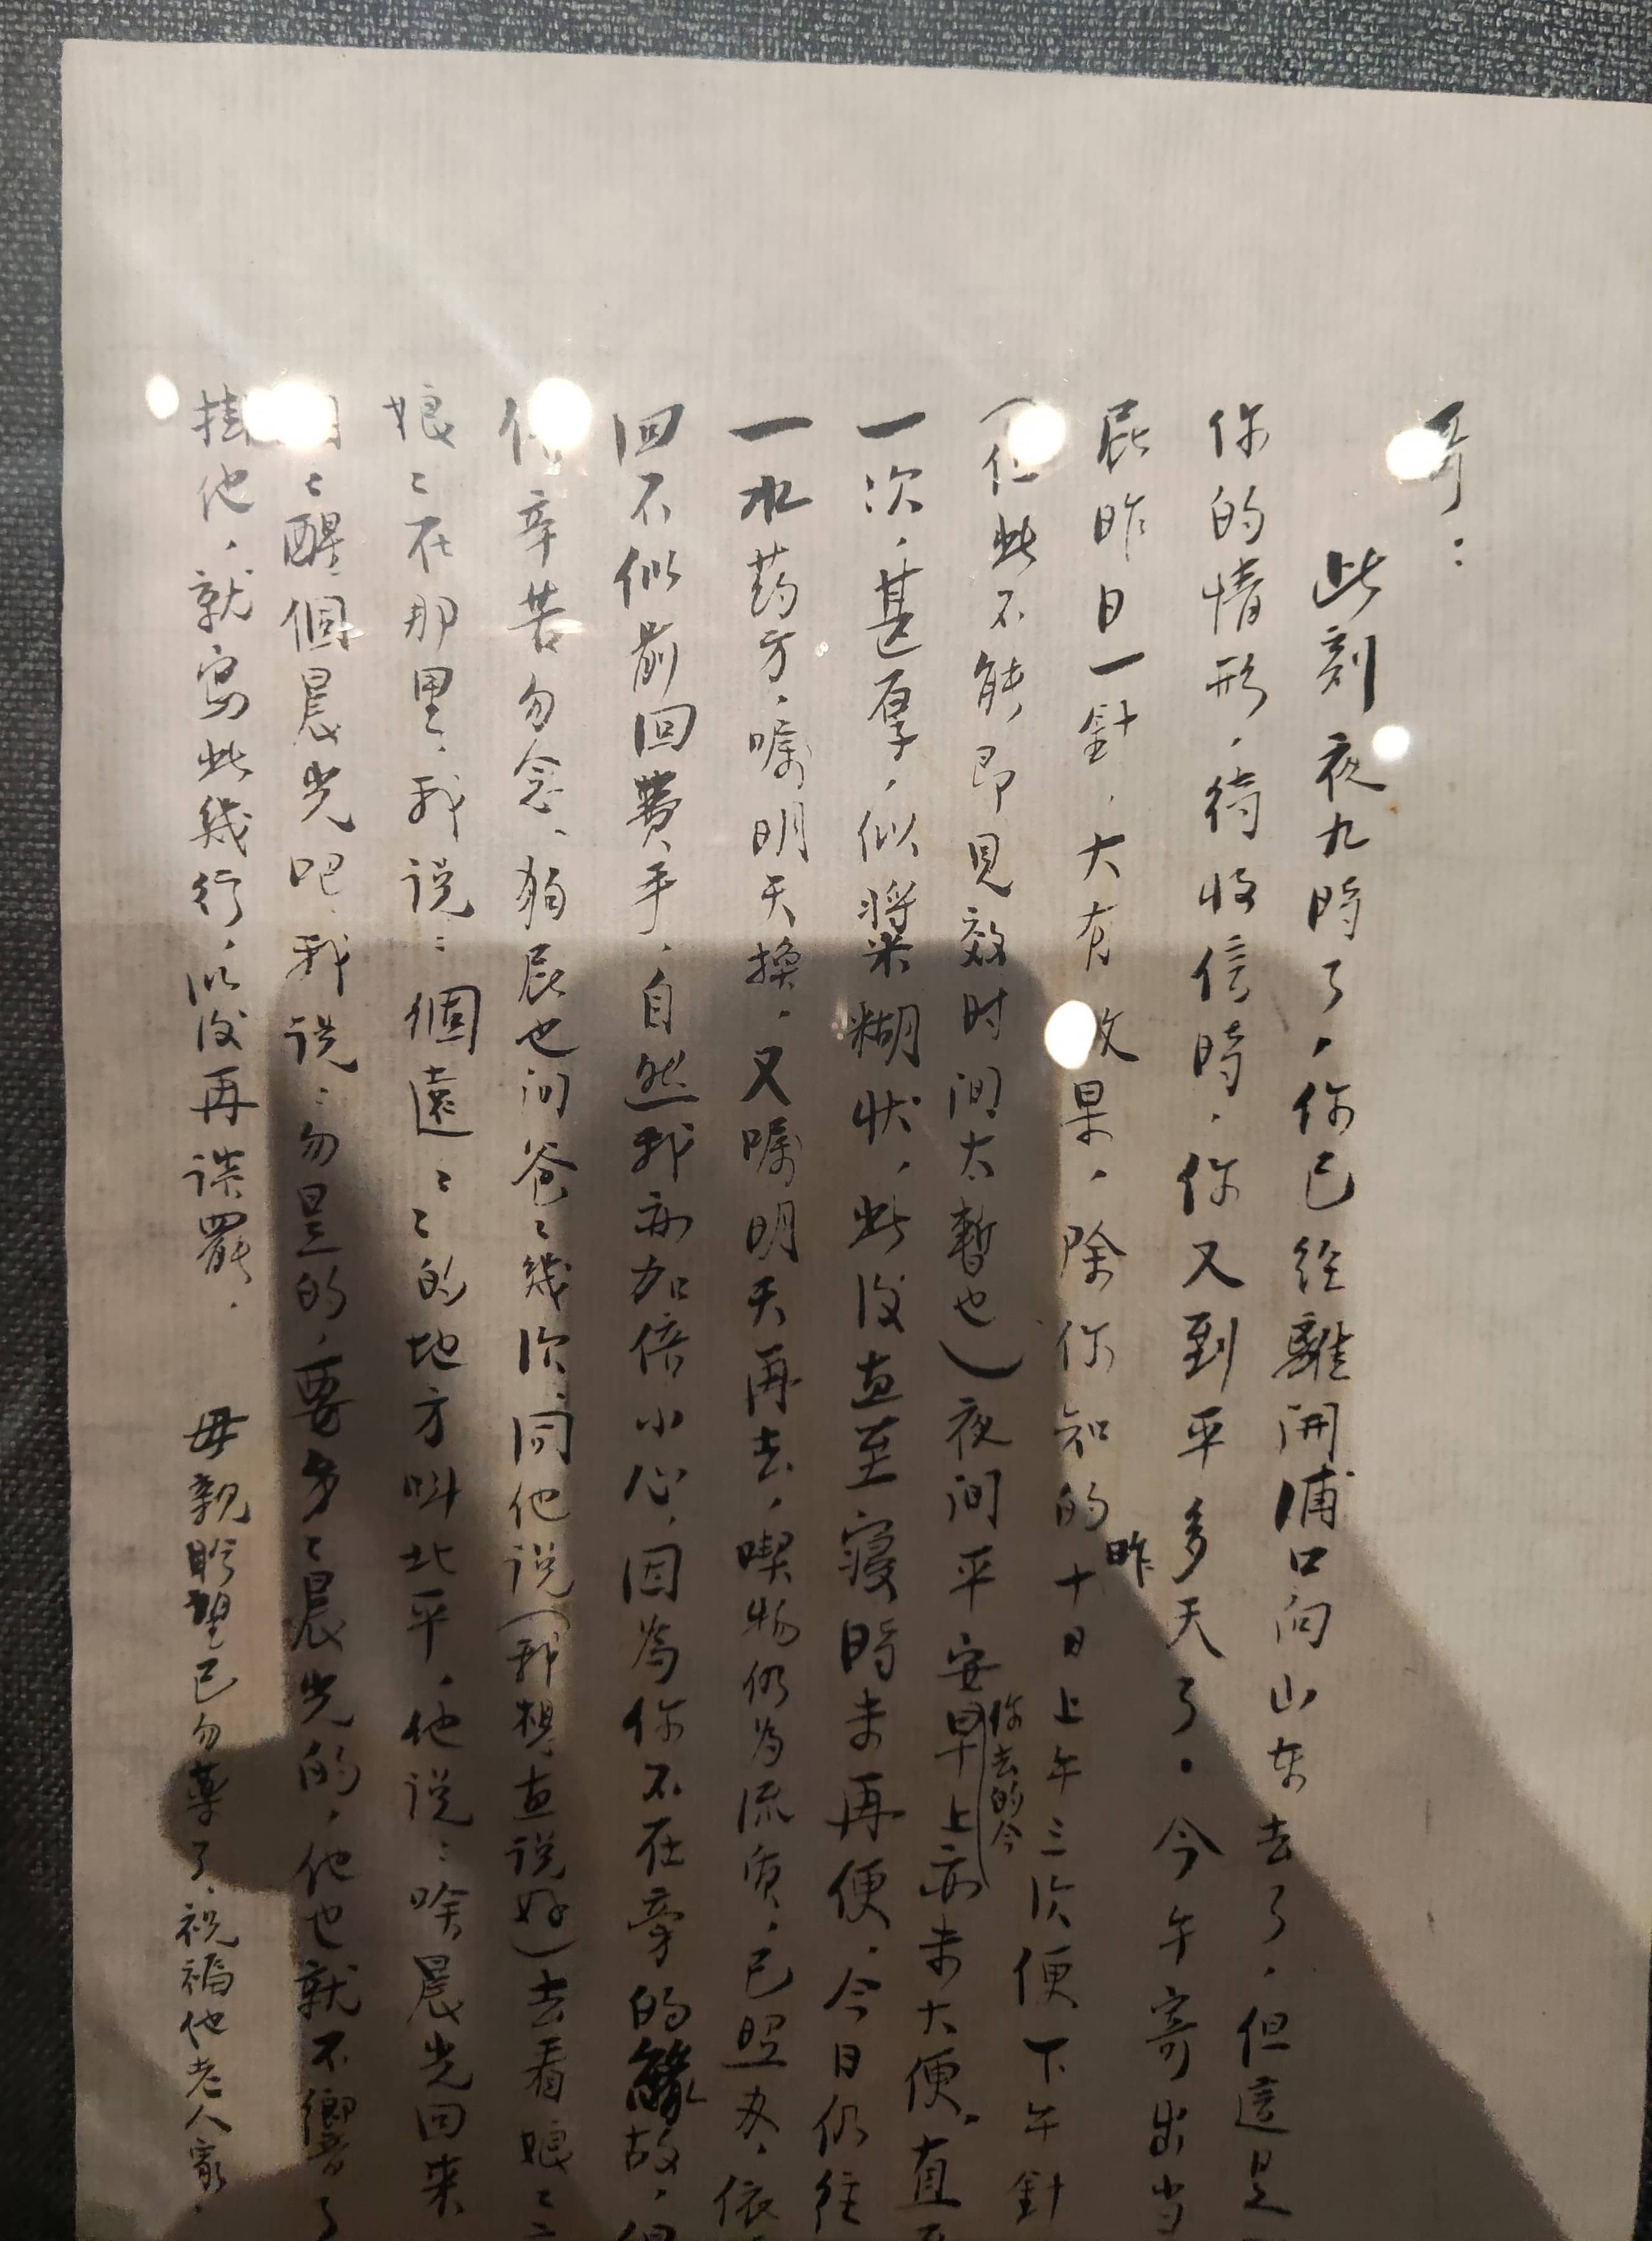 哥：
此刻夜九時了，你已经離開浦口向山东去了，但這是
你的情形，待收信時，你又到平多天了。今午寄出当
屁昨日一針，大有效果，除你知的昨十日上午三次便下午針
（但此不能即見效时间太暫也）夜间平安早上你去的今亦未大便，直至
一次，甚厚，似將米糊状，此后直至寝時未再便，今日仍往
一水药方，嘱明天換，又嘱明天再去，喫物仍为流质，已照办，依
回不似前回費手，自然我亦加倍小心，因為你不在旁的緣故，但
倍辛苦勿念、狗屁也问爸〻幾次，同他说（我想直说好）去看娘〻
娘〻在那里，我说：個遠〻〻的地方叫北平，他说：啥晨光回来
〻醒個晨光吧，我说：勿是的，要多〻晨光的，他也就不響了
掛他，就寫此幾行，以后再谈罷，　母親盼望已勿藥了，祝福他老人家，